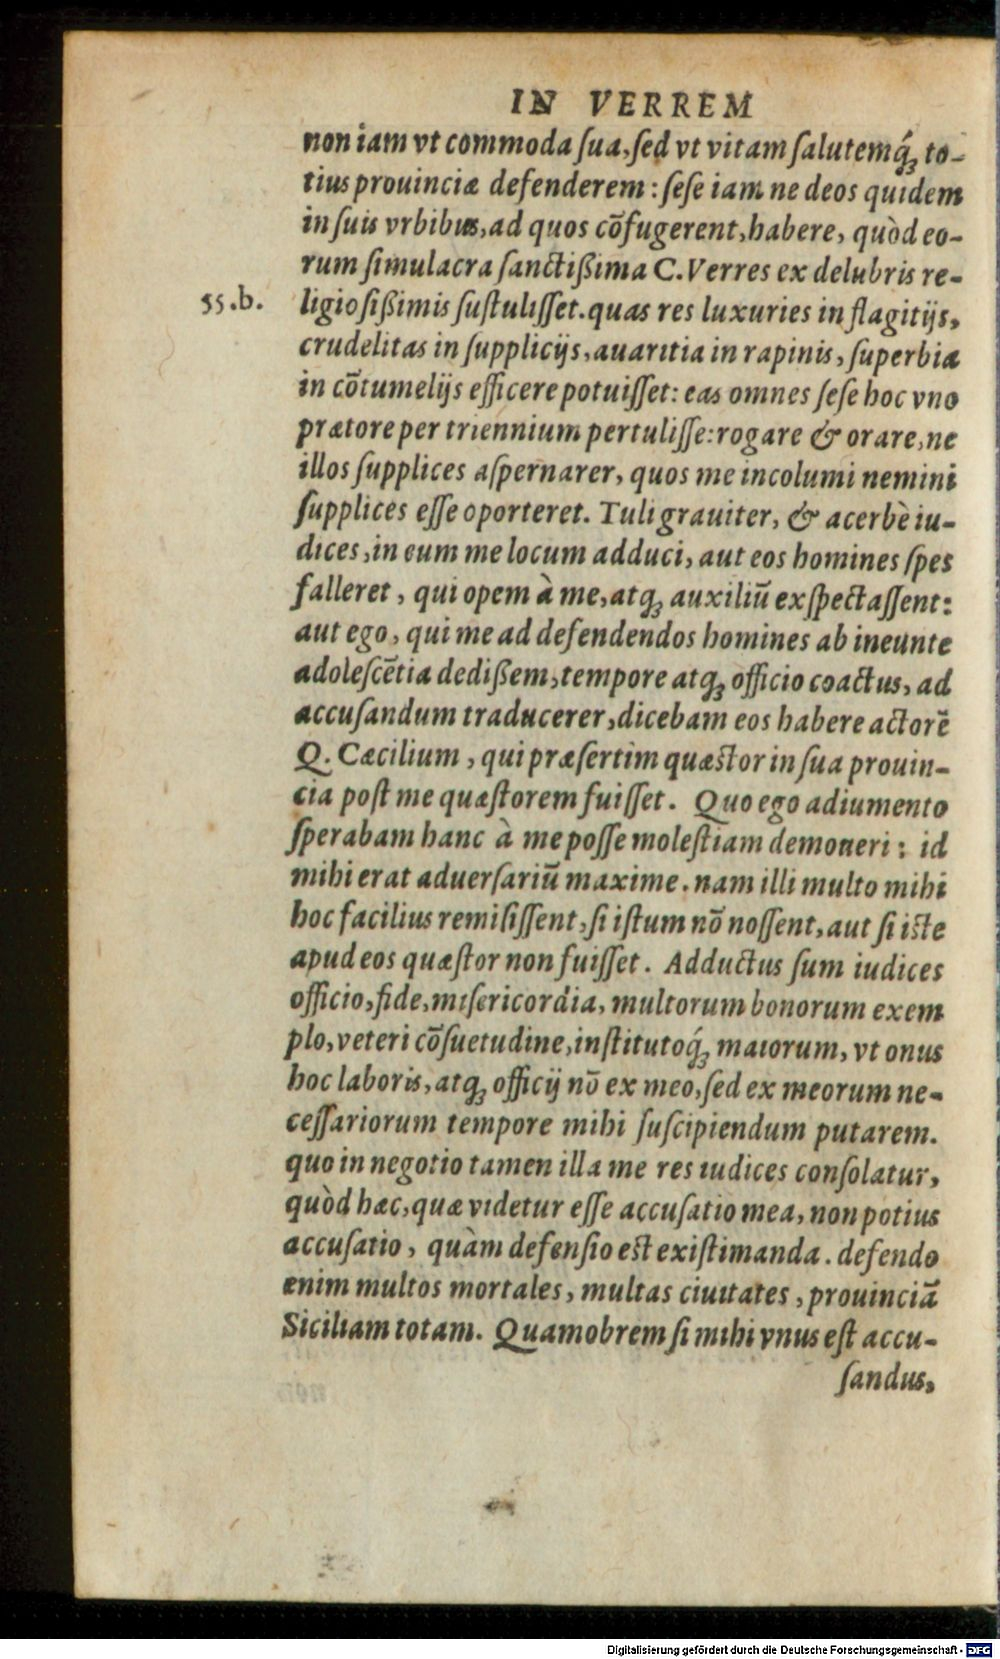 IN VERREM
non iam vt commoda ſua, ſed vt vitam ſalutemq́ꝫ to-
tius prouinciæ defenderem : ſeſe iam ne deos quidem
in ſuis vrbibus, ad quos cõfugerent, habere, quòd eo-
rum ſimulacra ſanctißima C. Verres ex delubris re-
55.b.
ligioſißimis ſuſtuliſſet. quas res luxuries in flagitijs,
crudelitas in ſupplicijs, auaritia in rapinis, ſuperbia
in cõtumelijs efficere potuiſſet: eas omnes ſeſe hoc vno
prætore per triennium pertuliſſe: rogare & orare, ne
illos ſupplices aſpernarer, quos me incolumi nemini
ſupplices eſſe oporteret. Tuli grauiter, & acerbè iu-
dices, in eum me locum adduci, aut eos homines ſpes
falleret, qui opem à me, atqꝫ auxiliũ exſpectaſſent:
aut ego, qui me ad defendendos homines ab ineunte
adoleſcẽtia dedißem, tempore atqꝫ officio coactus, ad
accuſandum traducerer, dicebam eos habere actorẽ
Q. Cæcilium, qui præſertim quæſtor in ſua prouin-
cia poſt me quæſtorem fuiſſet. Quo ego adiumento
ſperabam hanc à me poſſe moleſtiam demoueri : id
mihi erat aduerſariũ maxime. nam illi multo mihi
hoc facilius remiſiſſent, ſi iſtum nõ noſſent, aut ſi iſte
apud eos quæſtor non fuiſſet. Adductus ſum iudices
officio, fide, miſericordia, multorum bonorum exem
plo, veteri cõſuetudine, inſtitutoq́ꝫ maiorum, vt onus
hoc laboris, atqꝫ officij nõ ex meo, ſed ex meorum ne-
ceſſariorum tempore mihi ſuſcipiendum putarem.
quo in negotio tamen illa me res iudices conſolatur,
quòd hæc, quæ videtur eſſe accuſatio mea, non potius
accuſatio, quàm defenſio eſt exiſtimanda. defendo
enim multos mortales, multas ciuitates, prouinciã
Siciliam totam. Quamobrem ſi mihi vnus eſt accu-
ſandus,
Digitalisierung gefördert durch die Deutsche Forschungsgemeinschaft - DFG